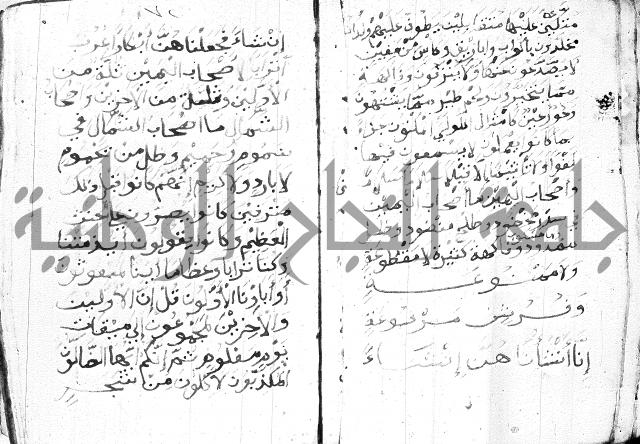 متكئين عليها متقابلين يطوف عليهم ولدان
مخلدون باكواب واباريق وكاس من معين
لا يصدعون عنها ولا ينزفون وفاكهة
مما يتخيرون ولحم طير مما يشتهون
وحور عين كامثال اللولو المكنون جزاء
بما كانوا يعملون لا يسمعون فيها
لغوا ولا تاثيما الا قيلا
واصحاب اليمين ما اصحاب اليمين
في سدر مخضود وطلح منضود وظل
ممدود وماء مسكوب وفاكهة كثيرة لا مقطوعة
ولا ممنوعة
وفرش مرفوعة
إنا أنشأناهن إنشاء
إنشاء فجعلناهن أبكارا عربا
أترابا لأصحاب اليمين ثلة من
الأولين وثلة من الآخرين وأصحاب
الشمال ما أصحاب الشمال في
سموم وحميم وظل من يحموم
لا بارد ولا كريم إنهم كانوا قبل ذلك
مترفين وكانوا يصرون على الحنث
العظيم وكانوا يقولون أيذا متنا
وكنا ترابا وعظاما إنا لمبعوثون
أو آباؤنا الأولون قل إن الأولين
والآخرين لمجموعون إلى ميقات
يوم معلوم ثم إنكم أيها الضالون
المكذبون لآكلون من شجر
جامعة النجاح الوطنية